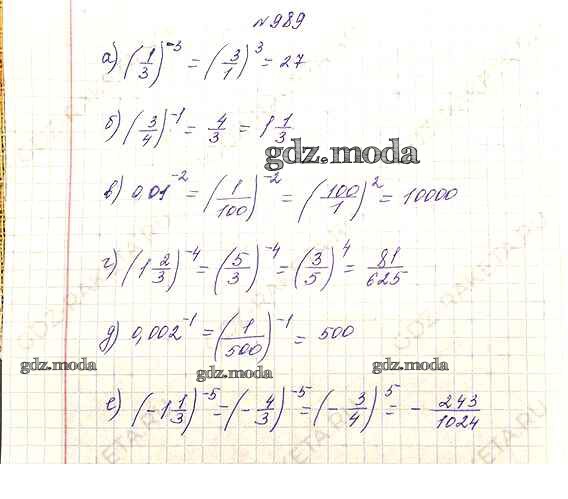 №989
а) (1/3)^-3 = (3/1)^3 = 27
б) (3/4)^-1 = 4/3 = 1 1/3
gdz.moda
в) 0,01^-2 = (1/100)^-2 = (100/1)^2 = 10000
г) (1 2/3)^-4 = (5/3)^-4 = (3/5)^4 = 81/625
д) 0,002^-1 = (1/500)^-1 = 500
gdz.moda gdz.moda gdz.moda
е) (-1 1/3)^-5 = (-4/3)^-5 = (-3/4)^5 = -243/1024